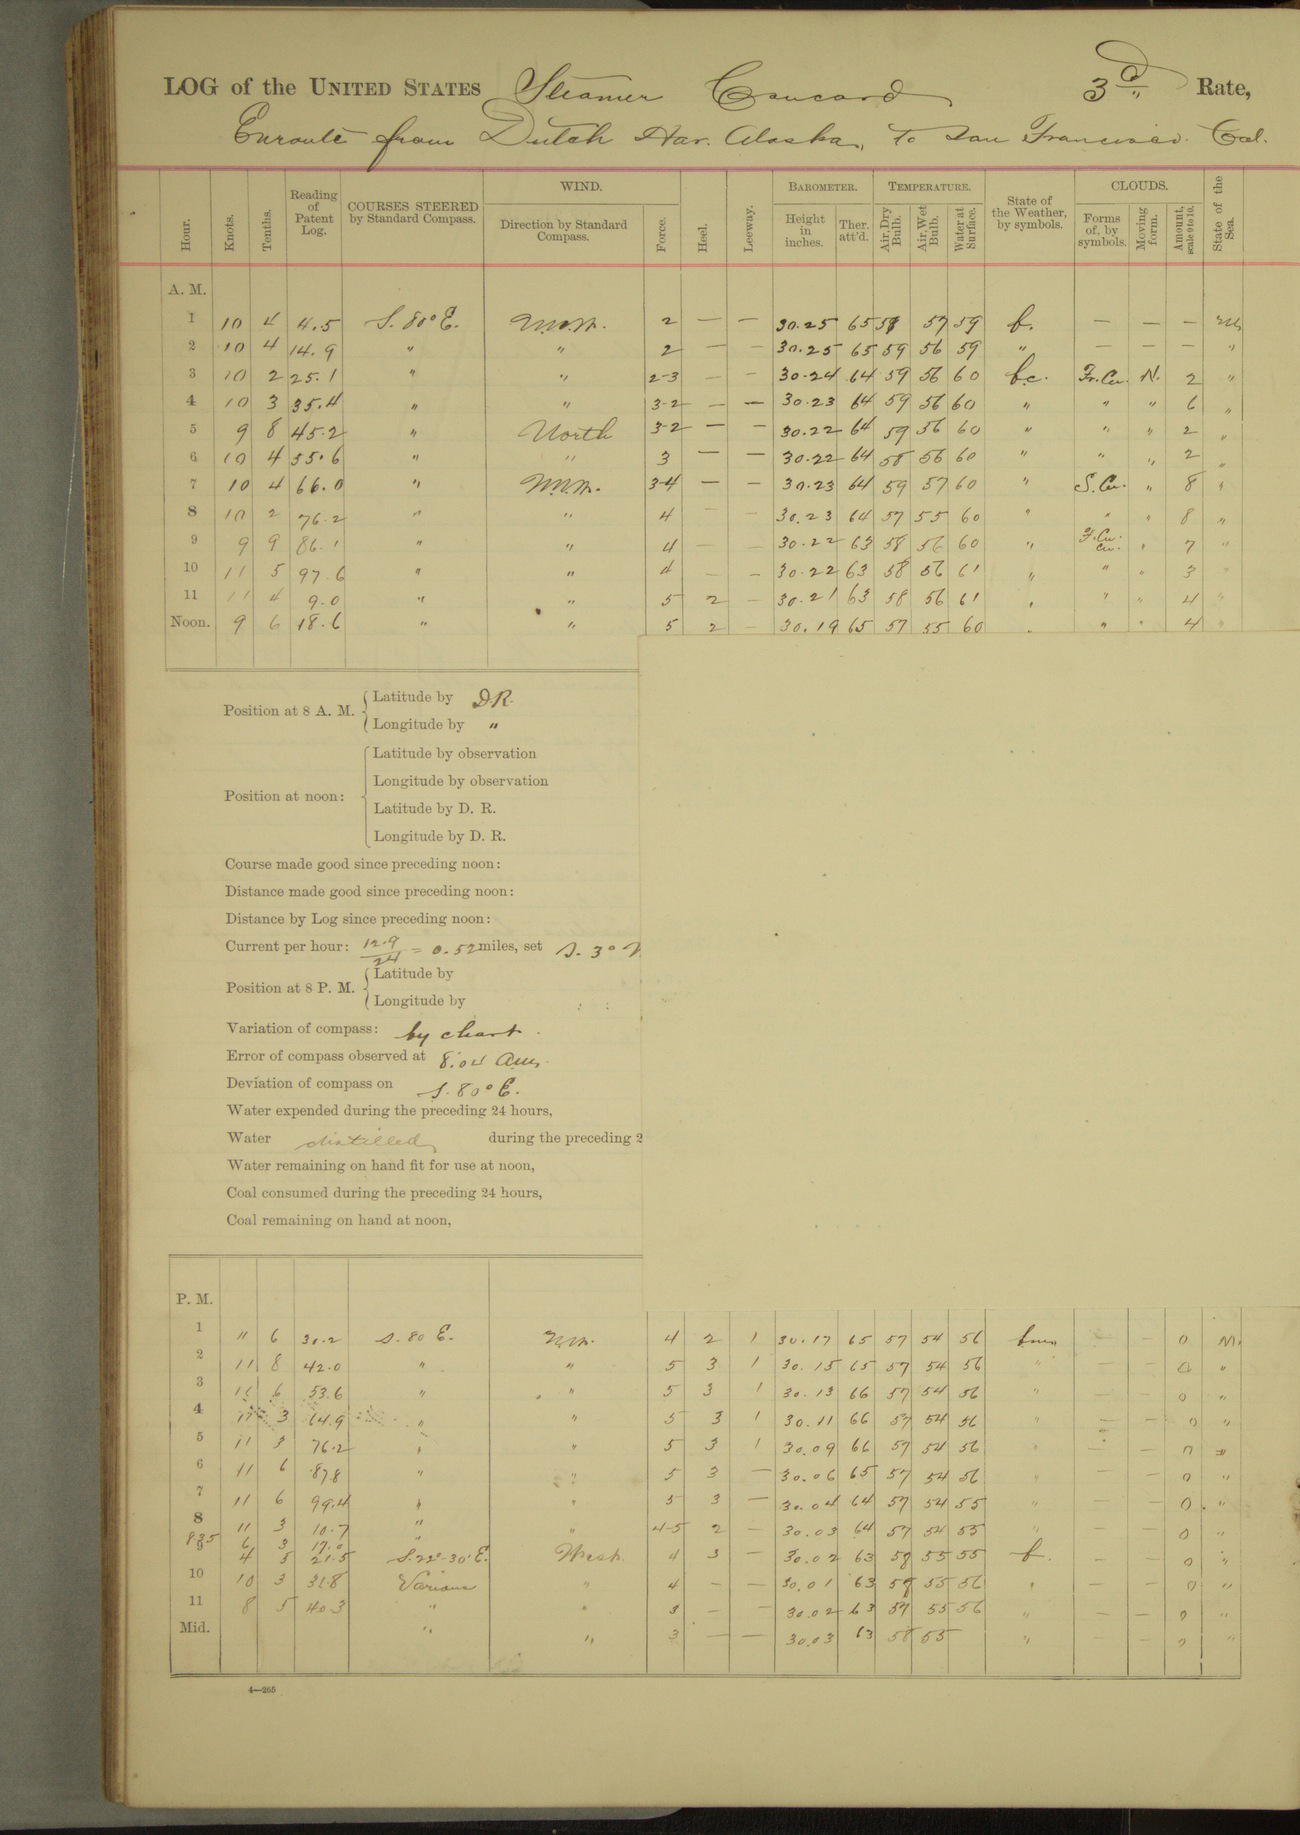 LOG of the UNITED STATES Steamer Concord 3d Rate,
Enroute from Dutch Har. Alaska, to San Francisco. Cal.
Hour. Knots. Tenths. Reading of Patent Log. COURSES STEERED by Standard Compass. WIND. Direction by Standard Compass. Force. Heel. Leeway. BAROMETER. Height in inches. Ther. att'd. TEMPERATURE. Air, Dry Bulb. Air, Wet Bulb. Water at Surface. State of the Weather, by symbols. CLOUDS. Forms of, by symbols. Moving form. Amount, scale 0 to 10. State of the Sea.
A. M.
1 10 4 4.5 S. 80° E. 2 — — 30.25 65 58 57 59 b. — — —
2 10 4 14.9 " " 2 — — 30.25 65 59 56 59 " — — — "
3 10 2 25.1 " " 2-3 — — 30.24 64 59 56 60 b.c. Fr. Cu. N. 2 "
4 10 3 35.4 " " 3-2 — — 30.23 64 59 56 60 " " " 6 "
5 9 8 45.2 " North 3-2 — — 30.22 64 59 56 60 " " " 2 "
6 10 4 55.6 " " 3 — — 30.22 64 58 56 60 " " " 2 "
7 10 4 66.0 " N.N.W. 3-4 — — 30.23 64 59 57 60 " S. Cu. " 8 "
8 10 2 76.2 " " 4 — — 30.23 64 57 55 60 " " " 8 "
9 9 9 86.1 " " 4 — — 30.22 63 58 56 60 " F. Cu. Cu. " 7 "
10 11 5 97.6 " " 4 — — 30.22 63 58 56 61 " " " 3 "
11 11 4 9.0 " " 5 2 — 30.21 63 58 56 61 " " " 4 "
Noon. 9 6 18.6 " " 5 2 — 30.19 65 57 55 60 " " " 4 "
Position at 8 A. M. Latitude by DR.
Longitude by "
Position at noon: Latitude by observation
Longitude by observation
Latitude by D. R.
Longitude by D. R.
Course made good since preceding noon:
Distance made good since preceding noon:
Distance by Log since preceding noon:
Current per hour: 12.9/24 = 0.52 miles, set S. 3°
Position at 8 P. M. Latitude by
Longitude by
Variation of compass: by chart.
Error of compass observed at 8:04 am.
Deviation of compass on S. 80° E.
Water expended during the preceding 24 hours,
Water distilled during the preceding 2
Water remaining on hand fit for use at noon,
Coal consumed during the preceding 24 hours,
Coal remaining on hand at noon,
P. M.
1 11 6 30.2 S. 80 E. N.W. 4 2 1 30.17 65 57 54 56 — — 0 M.
2 11 8 42.0 " " 5 3 1 30.15 65 57 54 56 " — — 0 "
3 11 6 53.6 " " 5 3 1 30.13 66 57 54 56 " — — 0 "
4 11 3 64.9 " " 5 3 1 30.11 66 57 54 56 " — — 0 "
5 11 3 76.2 " " 5 3 1 30.09 66 57 54 56 " — — 0 "
6 11 6 87.8 " " 5 3 — 30.06 65 57 54 56 " — — 0 "
7 11 6 99.4 " " 5 3 — 30.04 64 57 54 55 " — — 0 "
8 11 3 10.7 " " 4-5 2 — 30.03 64 57 54 55 " — — 0 "
8 35 6 3 17.0 "
9 4 5 21.5 S. 22°-30' E. West. 4 3 — 30.02 63 58 55 55 b. — — 0 "
10 10 3 31.8 Various " 4 — — 30.01 63 58 55 56 " — — 0 "
11 8 5 40.3 " " 3 — — 30.02 63 57 55 56 " — — 0 "
Mid. " " 3 — — 30.03 63 58 55 " — — 0 "
4—265